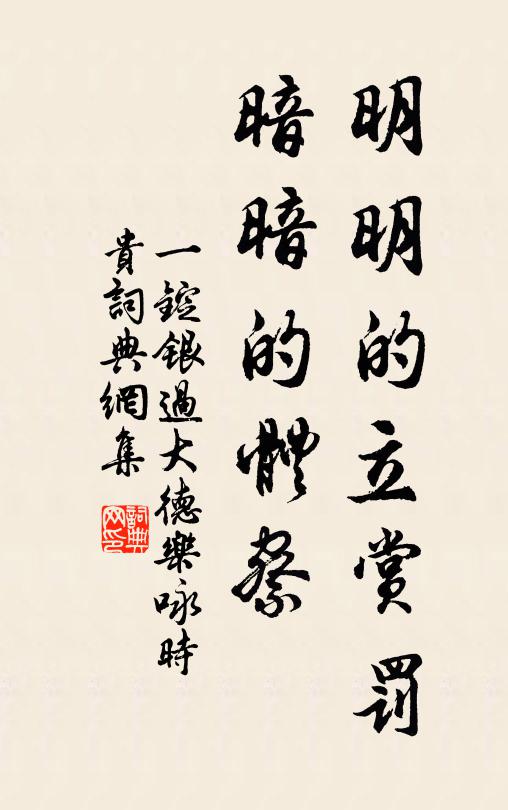 明明的立賞罰
暗暗的體察
一錠銀過大德樂咏時
貴詞典網集
詞典
网印